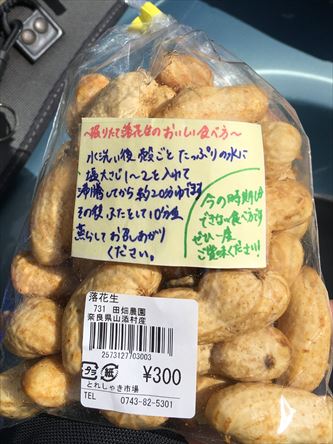 ～掘りたて落花生のおいしい食べ方～
水洗い後 殻ごと たっぷりの水に
塩大さじ1～2を入れて
沸騰してから約20分ゆでます
その後 ふたをして10分位
蒸らしてお召しあがり
ください。
今の時期しか
できない食べ方です
ぜひ一度
ご賞味ください!
落花生
731 田畑農園
奈良県山添村産
2573127703003
プラ
紙
¥300
とれしゃき市場
TEL 0743-82-5301